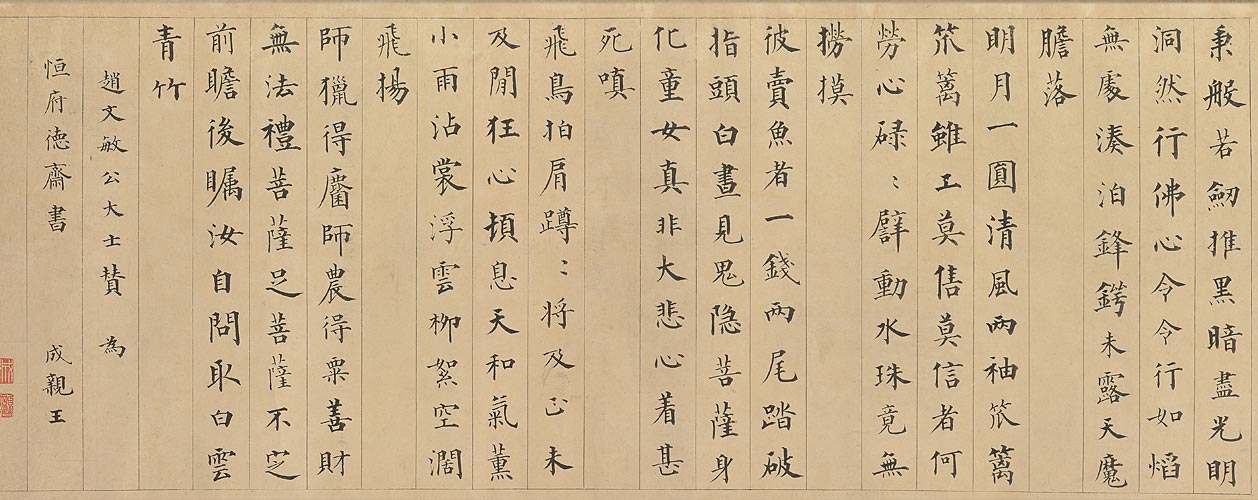 秉般若劒推黑暗盡光明
洞然行佛心令令行如焰
無處湊泊鋒鍔未露天魔
膽落
明月一圓清風兩袖笊篱
笊篱雖工莫售莫信者何
勞心碌〻擘動水珠竟無
撈摸
彼賣魚者一錢兩尾踏破
指頭白晝見鬼隐菩薩身
化童女真非大悲心着甚
死嗔
飛鳥拍肩蹲〻将及正未
及閒狂心頓息天和氣薰
小雨沾裳浮雲柳絮空濶
飛揚
師獵得麕師農得粟善財
無法禮菩薩足菩薩不㝎
前瞻後矚汝自問取白雲
青竹
趙文敏公大士賛 為
恒府徳齋書 成親王